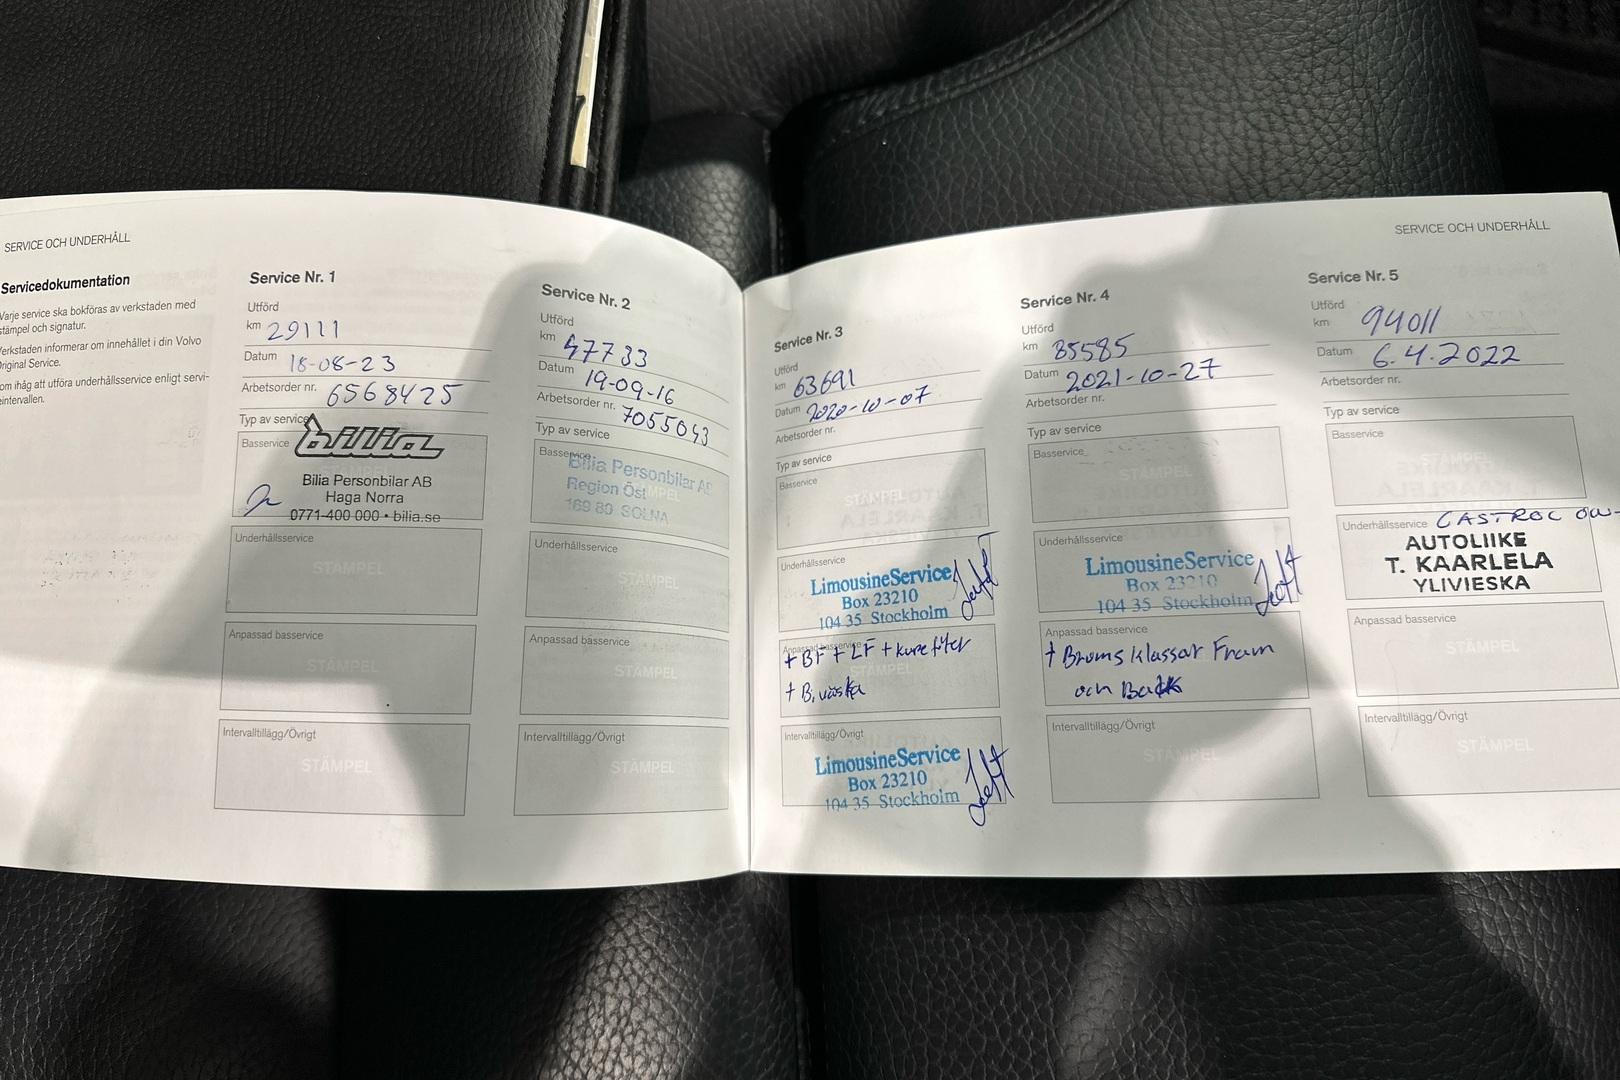 SERVICE OCH UNDERHÅLL
Servicedokumentation
Varje service ska bokföras av verkstaden med
stämpel och signatur.
Verkstaden informerar om innehållet i din Volvo
Original Service.
om ihåg att utföra underhållsservice enligt servi-
eintervallen.
Service Nr. 1
Utförd
km 29111
Datum 18-08-23
Arbetsorder nr. 6568425
Typ av service
Basservice
bilia
Bilia Personbilar AB
Haga Norra
0771-400 000 • bilia.se
Underhållsservice
STÄMPEL
Anpassad basservice
STÄMPEL
Intervalltillägg/Övrigt
STÄMPEL
Service Nr. 2
Utförd
km 47733
Datum 19-09-16
Arbetsorder nr. 7055043
Typ av service
Basservice
Bilia Personbilar AB
Region Öst
169 80 SOLNA
Underhållsservice
STÄMPEL
Anpassad basservice
STÄMPEL
Intervalltillägg/Övrigt
STÄMPEL
SERVICE OCH UNDERHÅLL
Service Nr. 3
Utförd
km 63691
Datum 2020-10-07
Arbetsorder nr.
Typ av service
Basservice
STÄMPEL
Underhållsservice
LimousineService
Box 23210
104 35 Stockholm
Anpassad basservice
+ BF + LF + kupefilter
STÄMPEL
+ B.väska
Intervalltillägg/Övrigt
LimousineService
Box 23210
104 35 Stockholm
Service Nr. 4
Utförd
km 85585
Datum 2021-10-27
Arbetsorder nr.
Typ av service
Basservice
STÄMPEL
Underhållsservice
LimousineService
Box 23210
104 35 Stockholm
Anpassad basservice
+ Broms klassar Fram
och Back
Intervalltillägg/Övrigt
STÄMPEL
Service Nr. 5
Utförd
km 94011
Datum 6.4.2022
Arbetsorder nr.
Typ av service
Basservice
STÄMPEL
Underhållsservice CASTROL 0W-
AUTOLIIKE
T. KAARLELA
YLIVIESKA
Anpassad basservice
STÄMPEL
Intervalltillägg/Övrigt
STÄMPEL